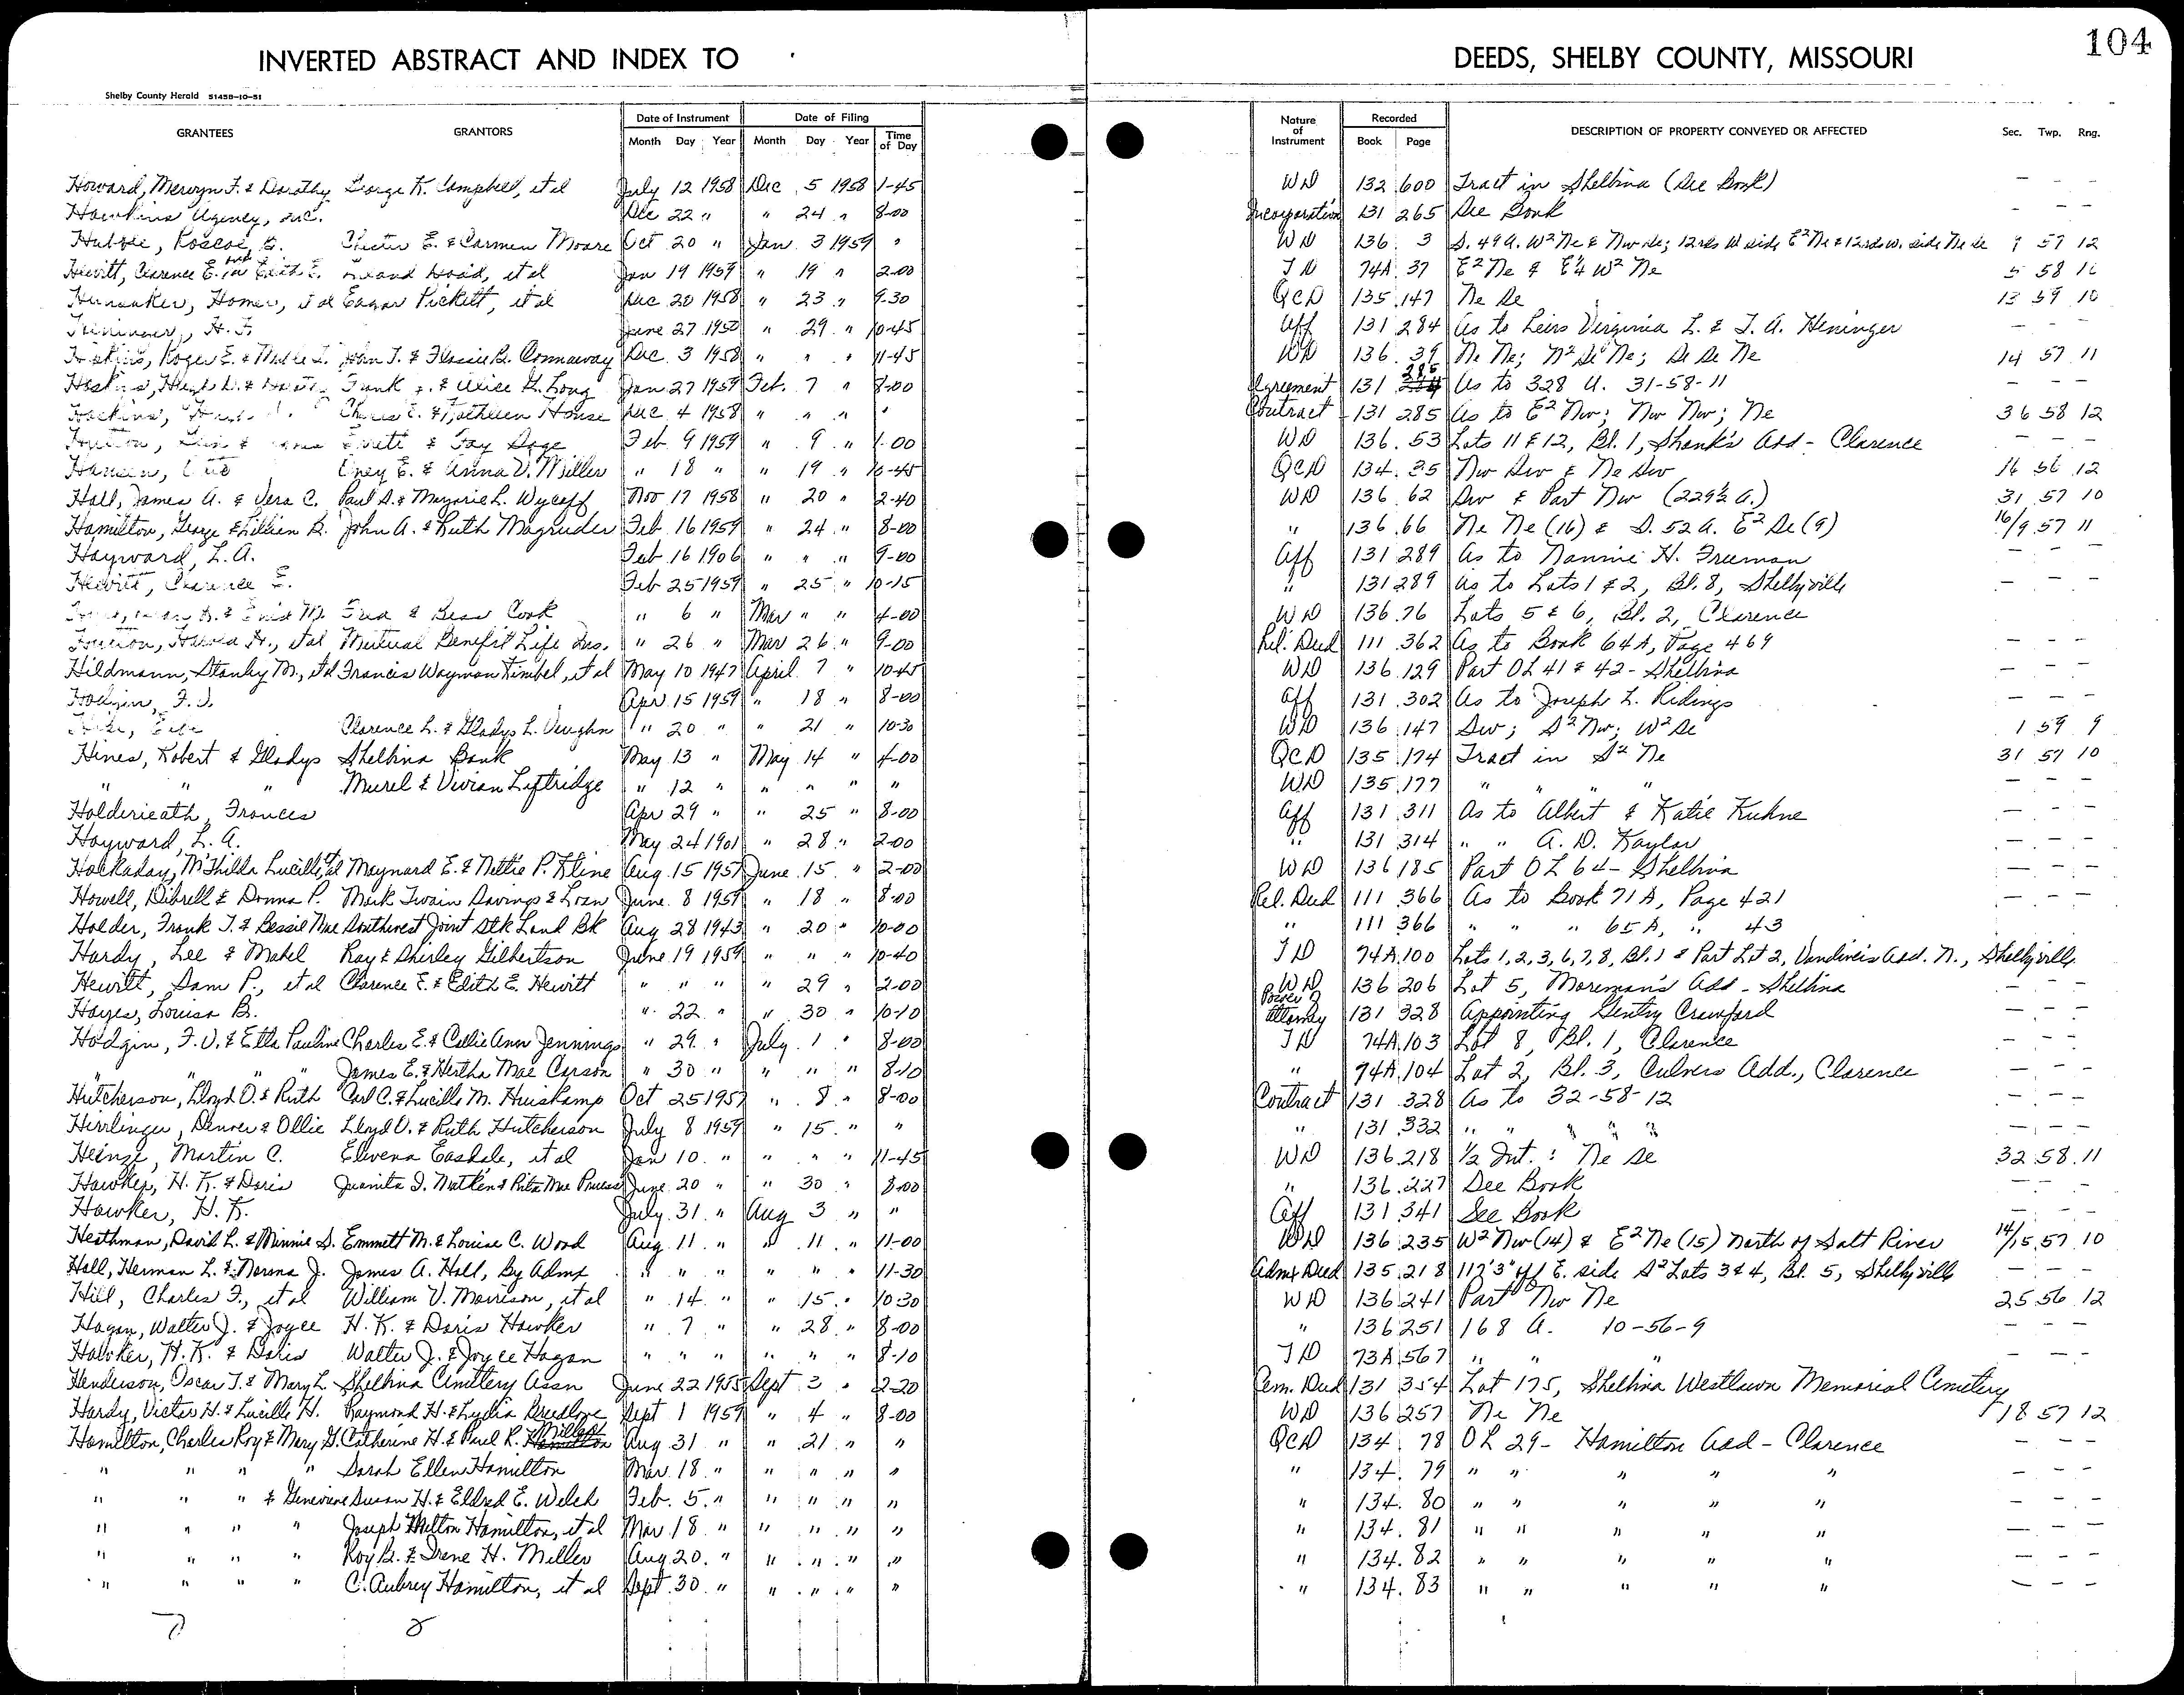 104
INVERTED ABSTRACT AND INDEX TO DEEDS, SHELBY COUNTY, MISSOURI
Shelby County Herald 51458-10-51
GRANTEES GRANTORS Date of Instrument Date of Filing Nature of Instrument Recorded DESCRIPTION OF PROPERTY CONVEYED OR AFFECTED Sec. Twp. Rng.
Month Day Year Month Day Year Time of Day Book Page
Howard, Merwyn F. & Dorothy George K. Campbell, et al July 12 1958 Dec 5 1958 1-45 WD 132 600 Tract in Shelbina (See Book) — — —
Hawkins Agency, Inc. Dec 22 " " 24 " 8-00 Incorporation 131 265 See Book — — —
Roscoe Chester E. & Carmen Moore Oct 20 " Jan 3 1959 " WD 136 3 S. 49 A. W2 Ne & Nw Se; 12 rds W side E2 Ne & 12 rds W. side Ne Se 9 57 12
Hewitt, Clarence E. and Edith E. et al Jan 19 1959 " 19 " 2-00 TD 74A 37 E2 Ne & E¼ W2 Ne 5 58
Hunsaker, Homer, et al Edgar Pickett, et al Dec 20 1958 " 23 " 9-30 QCD 135 147 Ne Se 13 59 10
Heninger, H. F. June 27 1950 " 29 " 10-45 Aff 131 284 As to heirs Virginia L. & T. A. Heninger — — —
Roger E. & John T. & Flossie B. Connaway Dec. 3 1958 " " " 11-45 WD 136 39 Ne Ne; N2 Se Ne; Se Se Ne 14 57 11
Frank & Alice H. Long Jan 27 1959 Feb. 7 " 8-00 Agreement 131 285 As to 328 A. 31-58-11 — — —
& Kathleen House Dec 4 1958 " " " " Contract 131 285 As to E2 Nw; Nw Nw; Ne 36 58 12
& Fay Feb 9 1959 " 9 " 1-00 WD 136 53 Lots 11 & 12, Bl. 1, Shank's Add - Clarence — — —
Oney E. & Anna V. Miller " 18 " " 19 " 10-45 QCD 134 35 Nw Sw & Ne Sw 16 56 12
Hall, James A. & Vera C. Paul S. & Marjorie L. Wycoff Nov 17 1958 " 20 " 2-40 WD 136 62 Sw & Part Nw (229½ A.) 31 57 10
Hamilton, George & Lillian B. John A. & Ruth Magruder Feb 16 1959 " 24 " 8-00 " 136 66 Ne Ne (16) & S. 52 A. E2 Se (9) 16/9 57 11
Hayward, L. A. Feb 16 1906 " " " 9-00 Aff 131 289 As to Nannie H. Freeman — — —
Hewitt, Clarence E. Feb 25 1959 " 25 " 10-15 " 131 289 As to Lots 1 & 2, Bl. 8, Shelbyville — — —
Fred & Bess Cook " 6 " Mar " " 4-00 WD 136 76 Lots 5 & 6, Bl. 2, Clarence — — —
et al Mutual Benefit Life Ins. " 26 " Mar 26 " 9-00 Rel. Deed 111 362 As to Book 64A, Page 469 — — —
Hildmann, Stanley M., et al Francis Wayman Kimbel, et al May 10 1947 April 7 " 10-45 WD 136 129 Part OL 41 & 42 - Shelbina — — —
Hodgin, F. V. Apr 15 1959 " 18 " 8-00 Aff 131 302 As to Joseph L. Ridings — — —
Clarence L. & Gladys L. Vaughn " 20 " " 21 " 10-30 WD 136 147 Sw; S2 Nw; W2 Se 1 59 9
Hines, Robert & Gladys Shelbina Bank May 13 " May 14 " 4-00 QCD 135 174 Tract in S2 Ne 31 57 10
" " " Murel & Vivian Liftridge " 12 " " " " " WD 135 177 " " " " — — —
Holderieath, Frances Apr 29 " " 25 " 8-00 Aff 131 311 As to Albert & Katie Kuhne — — —
Hayward, L. A. May 24 1901 " 28 " 2-00 " 131 314 " " A. D. Kaylor — — —
Hockaday, M'Thilda Lucille, et al Maynard E. & Nettie P. Kline Aug. 15 1957 June 15 " 2-00 WD 136 185 Part OL 64 - Shelbina — — —
Howell, Dibrell & Donna P. Mark Twain Savings & Loan June 8 1959 " 18 " 8-00 Rel. Deed 111 366 As to Book 71A, Page 421 — — —
Holder, Frank T. & Bessie Mae Southwest Joint Stk Land Bk Aug 28 1943 " 20 " 10-00 " 111 366 " " " 65A, " 43 — — —
Hardy, Lee & Mabel Ray & Shirley Gilbertson June 19 1959 " " " 10-40 TD 74A 100 Lots 1, 2, 3, 6, 7, 8, Bl. 1 & Part Lot 2, Vandiver's Add. N., Shelbyville
Hewitt, Sam P., et al Clarence E. & Edith E. Hewitt " " " " 29 " 2-00 WD 136 206 Lot 5, Moreman's Add - Shelbina — — —
Hayes, Louisa B. " 22 " " 30 " 10-10 Power of Attorney 131 328 Appointing Gentry Crawford — — —
Hodgin, F. V. & Etta Pauline Charles E. & Callie Ann Jennings " 29 " July 1 " 8-00 TD 74A 103 Lot 8, Bl. 1, Clarence — — —
" " " " James E. & Hertha Mae Carson " 30 " " " " 8-10 " 74A 104 Lot 2, Bl. 3, Culvers Add., Clarence — — —
Hutcherson, Lloyd O. & Ruth Carl C. & Lucille M. Huiskamp Oct 25 1957 " 8 " 8-00 Contract 131 328 As to 32-58-12 — — —
Hirrlinger, Denver & Ollie Lloyd O. & Ruth Hutcherson July 8 1959 " 15 " " " 131 332 " " " " " — — —
Heinze, Martin C. Elevena Easdale, et al Jan 10 " " " " 11-45 WD 136 218 ½ Int.: Ne Se 32 58 11
Hawker, H. K. & Doris Juanita I. & Rita Mae June 20 " " 30 " 8-00 " 136 227 See Book — — —
Hawker, H. K. July 31 " Aug 3 " " Aff 131 341 See Book — — —
Heathman, David L. & Minnie S. Emmett M. & Louise C. Wood Aug. 11 " " 11 " 11-00 WD 136 235 W2 Nw (14) & E2 Ne (15) North of Salt River 14/15 57 10
Hall, Herman L. & Norma J. James A. Hall, By Admx " " " " " " 11-30 Admx Deed 135 218 117'3" off E. side S2 Lots 3 & 4, Bl. 5, Shelbyville — — —
Hill, Charles F., et al William V. Morrison, et al " 14 " " 15 " 10-30 WD 136 241 Part Nw Ne 25 56 12
Hagan, Walter J. & Joyce H. K. & Doris Hawker " 7 " " 28 " 8-00 " 136 251 168 A. 10-56-9 — — —
Hawker, H. K. & Doris Walter J. & Joyce Hagan " " " " " " 8-10 TD 73A 567 " " " — — —
Henderson, Oscar T. & Mary L. Shelbina Cemetery Assn June 22 1955 Sept 3 " 2-20 Cem. Deed 131 354 Lot 175, Shelbina Westlawn Memorial Cemetery
Hardy, Victor H. & Lucille H. Raymond H. & Lydia Breedlove Sept 1 1959 " 4 " 8-00 WD 136 257 Ne Ne 18 57 12
Hamilton, Charles Roy & Mary G. Catherine H. & Paul R. Miller Aug 31 " " 21 " " QCD 134 78 OL 29 - Hamilton Add - Clarence — — —
" " " " Sarah Ellen Hamilton Mar. 18 " " " " " " 134 79 " " " " " — — —
" " " & Genevieve Susan H. & Eldred E. Welch Feb. 5 " " " " " " 134 80 " " " " " — — —
" " " " Joseph Milton Hamilton, et al Mar 18 " " " " " " 134 81 " " " " " — — —
" " " " Roy B. & Irene H. Miller Aug. 20 " " " " " " 134 82 " " " " " — — —
" " " " C. Aubrey Hamilton, et al Sept 30 " " " " " " 134 83 " " " " " — — —